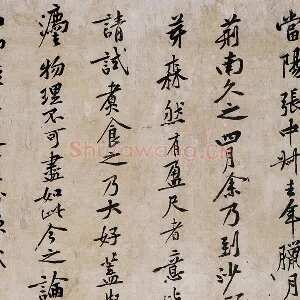 當陽張中叔去年臘月
荊南久之四月余乃到沙
芽森然有盈尺者意皆
請試煮食之乃大好蓋
物理不可盡如此今之論
Shufawang.cn